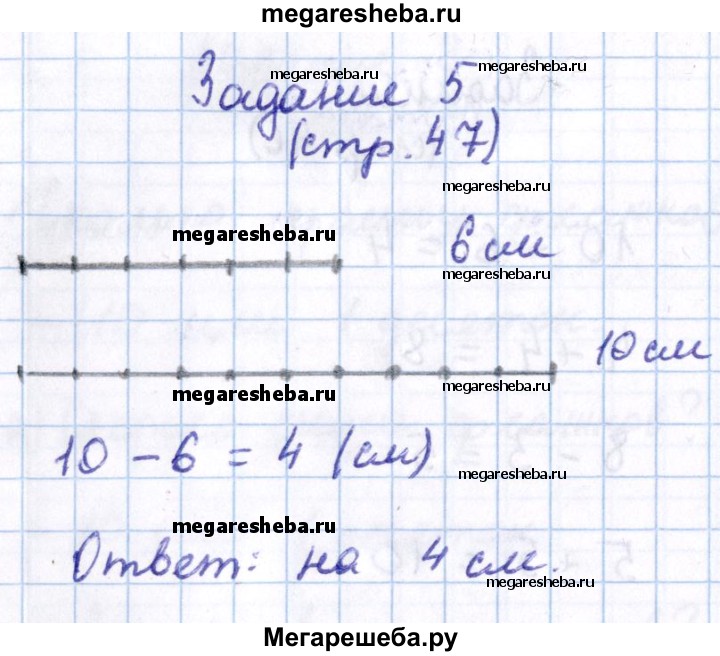 megaresheba.ru
megaresheba.ru
megaresheba.ru
Задание 5
(стр. 47)
megaresheba.ru
megaresheba.ru
6 см
megaresheba.ru
10 см
megaresheba.ru
megaresheba.ru
10 - 6 = 4 (см)
megaresheba.ru
megaresheba.ru
Ответ: на 4 см.
megaresheba.ru
Мегарешеба.ру